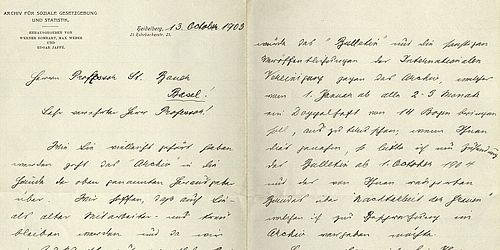 ARCHIV FÜR SOZIALE GESETZGEBUNG
UND STATISTIK.
HERAUSGEGEBEN VON
WERNER SOMBART, MAX WEBER
UND
EDGAR JAFFÉ.
Heidelberg, 13. October 1903
Herrn Professor St. Bauer
Basel!
Sehr verehrter Herr Professor!
Wie Sie vielleicht gehört haben
werden geht das "Archiv" in die
Hände der oben genannten Herausgeber
über. Wir hoffen, dass auch Sie
als alter Mitarbeiter uns treu
bleiben werden und da wir
würde das "Bulletin" und die sonstigen
Veröffentlichungen der Internationalen
Vereinigung gegen das Archiv, welches
vom 1. Januar ab alle 2-3 Monate
ein Doppelheft von 14 Bogen bringen
soll, auszutauschen; wenn Ihnen
das genehm, so bitte ich um Zusendung
des Bulletin ab 1. October 1904
und der von Ihnen
Bandes über "Nachtarbeit der Frauen"
welchen ich zur Besprechung im
Archiv vergeben möchte.